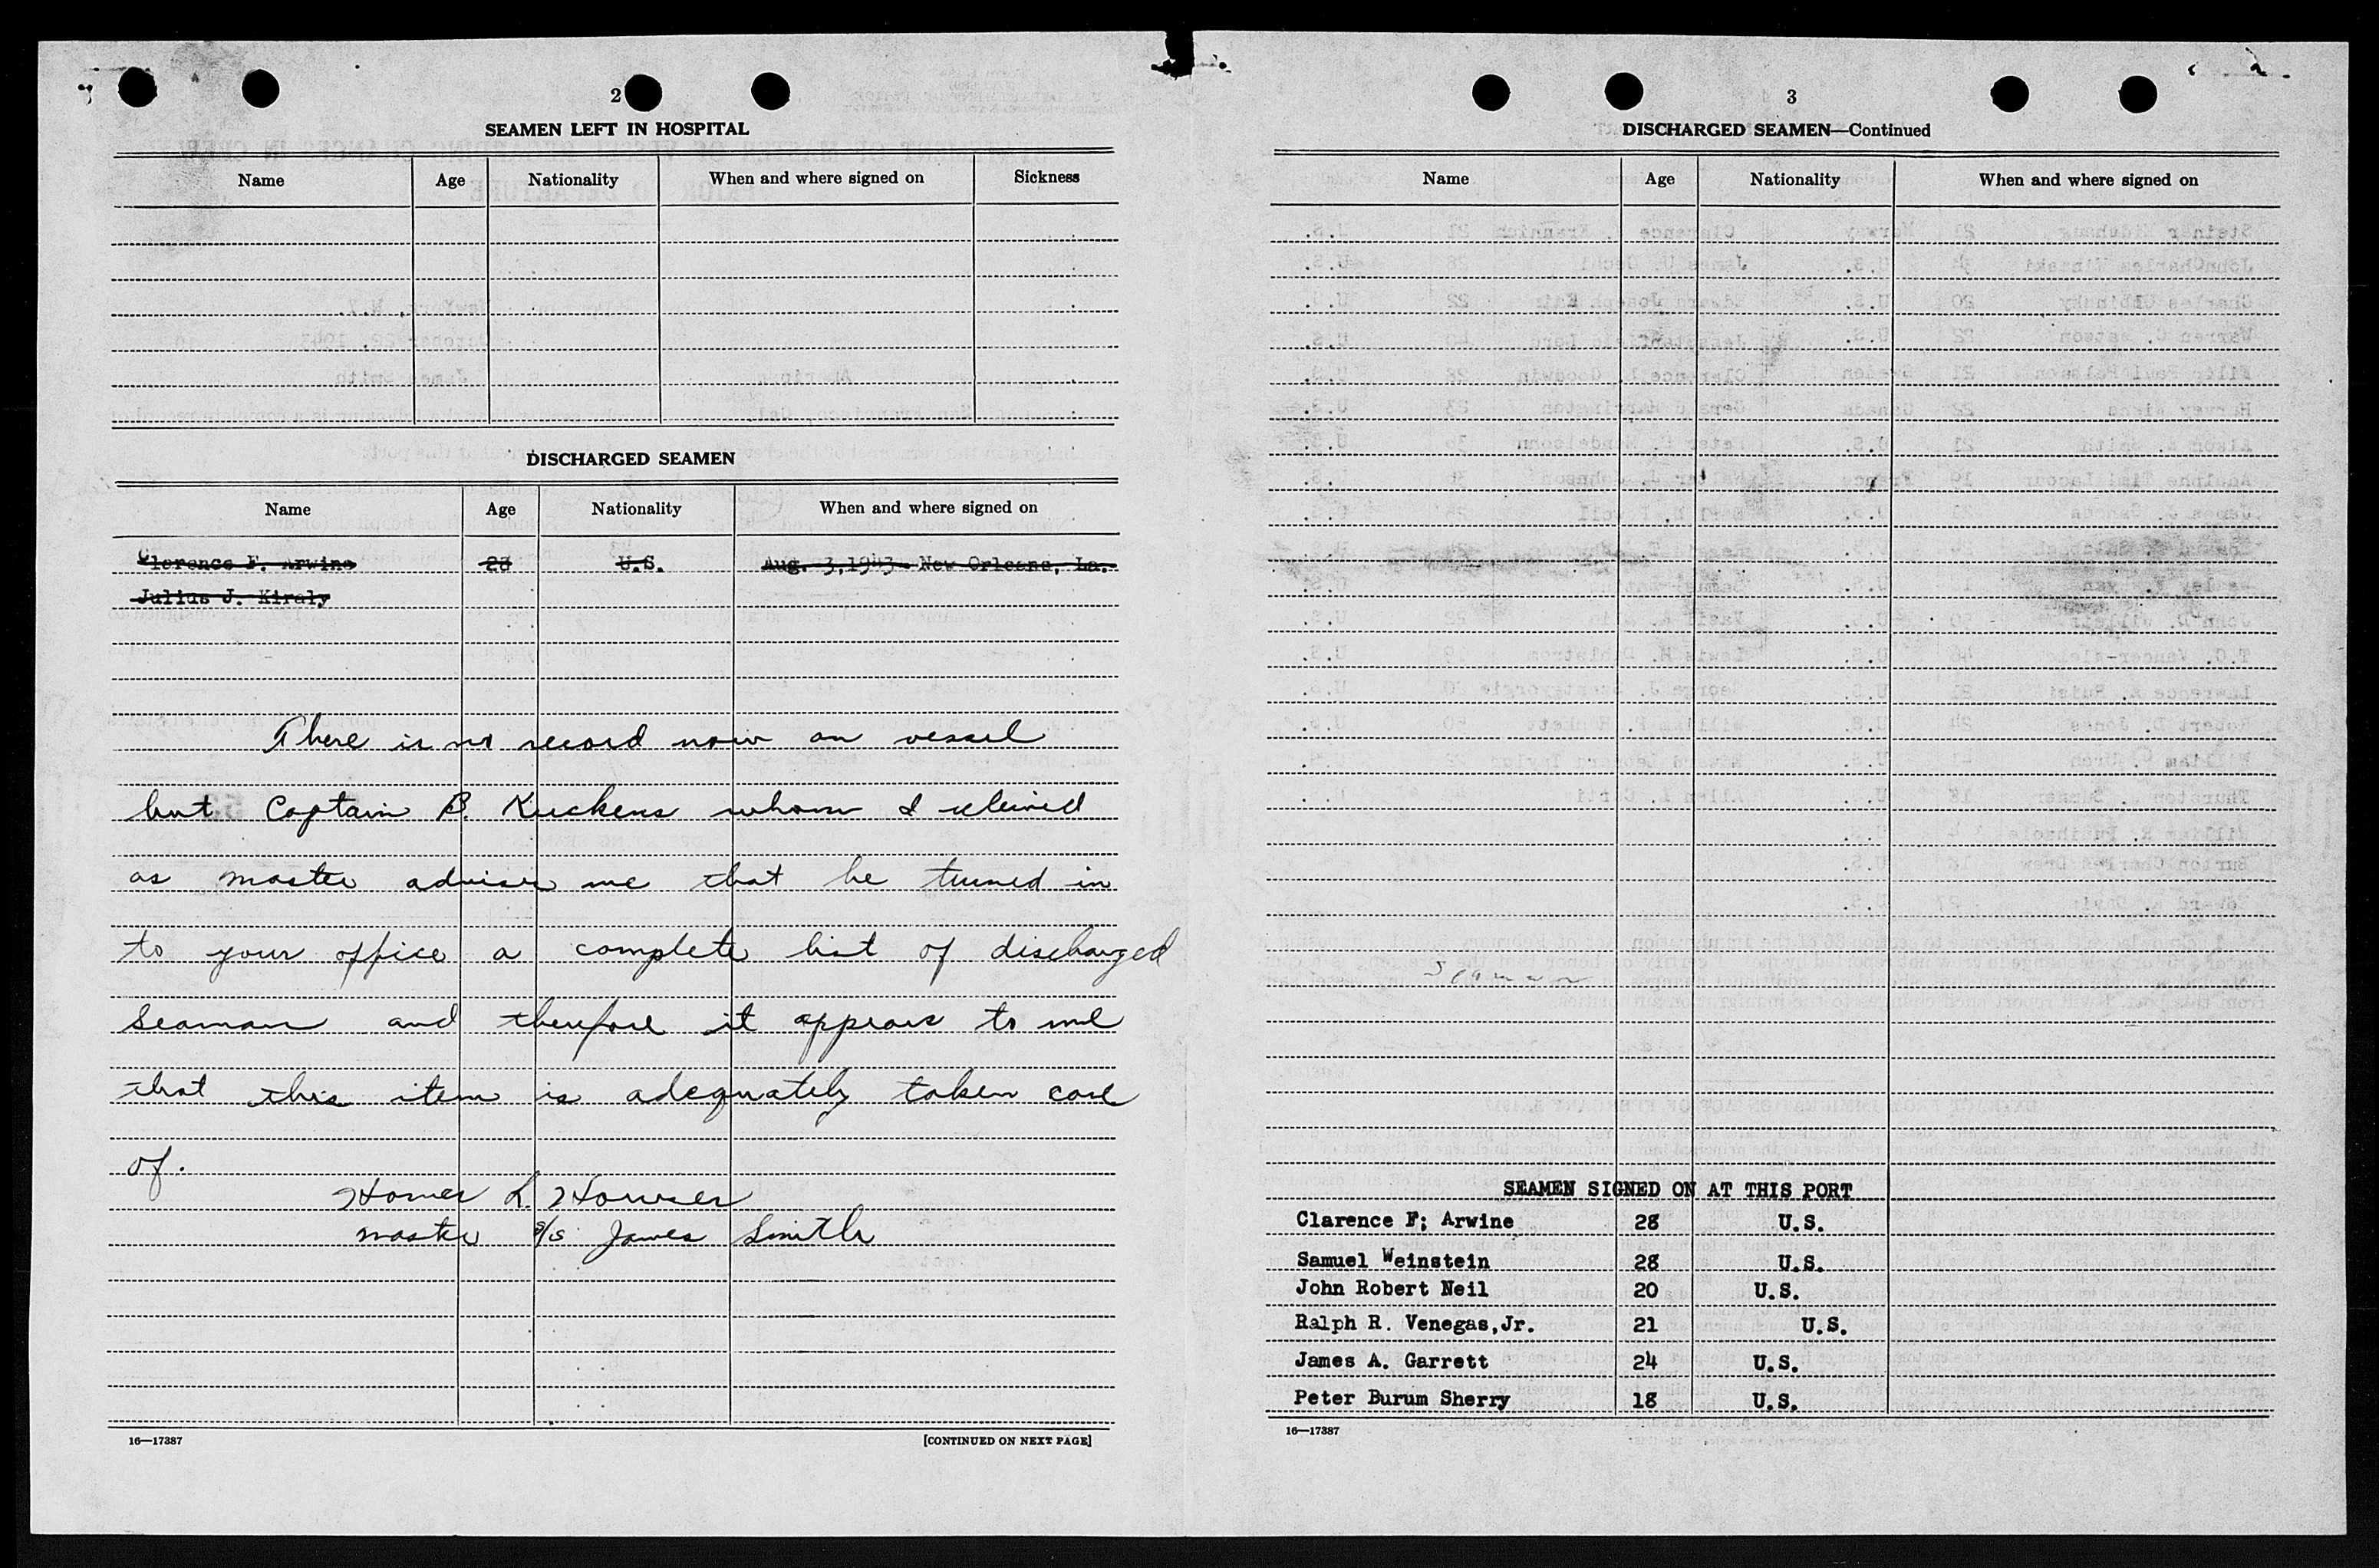 2
SEAMEN LEFT IN HOSPITAL
Name Age Nationality When and where signed on Sickness
DISCHARGED SEAMEN
Name Age Nationality When and where signed on
Clorence F. Arwine 28 U.S. Aug. 3,1943 New Orleans, La.
Julius J. Kiraly
There is no record now on vessel
but Captain B. Kuckens whom I relieved
as master advises me that he turned in
to your office a complete list of discharged
seaman and therefore it appears to me
that this item is adequately taken care
of.
Homer L. Howser
Master S/S James Smith
16—17387 [CONTINUED ON NEXT PAGE]
3
DISCHARGED SEAMEN—Continued
Name Age Nationality When and where signed on
SEAMEN SIGNED ON AT THIS PORT
Clarence F; Arwine 28 U.S.
Samuel Weinstein 28 U.S.
John Robert Neil 20 U.S.
Ralph R. Venegas,Jr. 21 U.S.
James A. Garrett 24 U.S.
Peter Burum Sherry 18 U.S.
16—17387